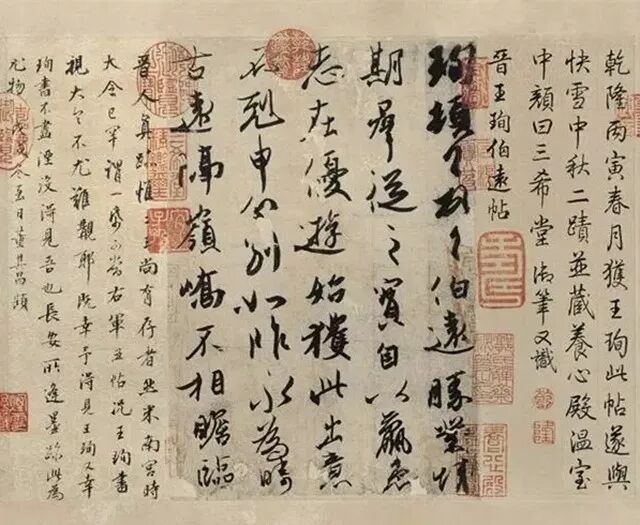 乾隆丙寅春月獲王珣此帖遂與
快雪中秋二蹟並藏養心殿溫室
中顏曰三希堂 御筆又識
晉王珣伯遠帖
珣頓首頓首伯遠勝業情
期群從之寶自以羸患
志在優遊始獲此出意
不剋申分別如昨永為疇
古遠隔嶺嶠不相瞻臨
晉人真跡惟二王尚有存者然米南宮時
大令已罕謂一紙可當右軍五帖況王珣書
視大令不尤難覯耶既幸予得見王珣又幸
珣書不盡湮沒得見吾也長安所逢墨跡此為
尤物戊戌冬至日董其昌題